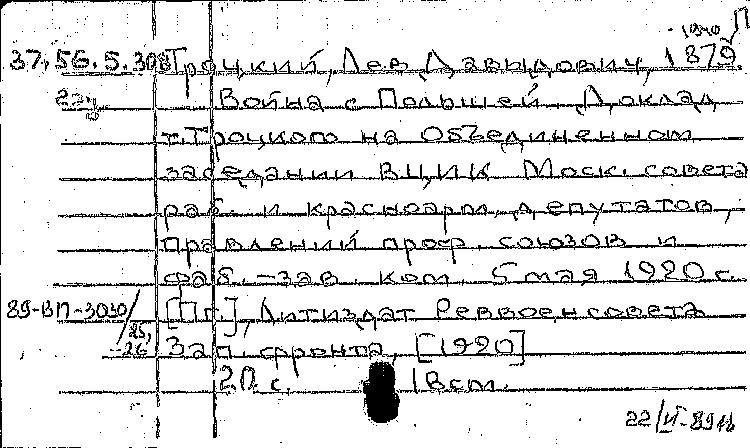 1940 П
37.56.5.308 Троцкий, Лев Давыдович, 1879.
Война с Польшей. Доклад
т. Троцкого на Объединенном
заседании ВЦИК Моск. совета
раб. и красноарм. депутатов,
правлений проф. союзов и
фаб.-зав. ком. 5 мая 1920 г.
89-ВП-3030/25,-26 [П.г.], Литиздат Реввоенсовета
Зап. фронта, [1920]
20 с. 18 см.